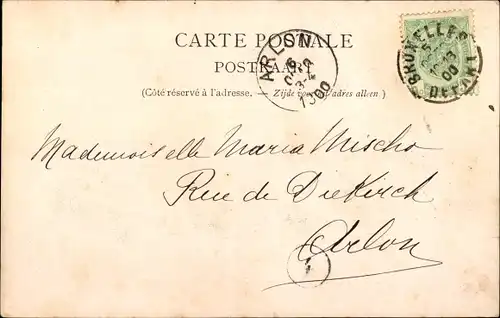 CARTE POSTALE
POSTKAART
(Côté réservé à l'adresse. — Zijde voor 't adres alleen)
ARLON
6
3-4
1900
BRUXELLES
5
13
00
DÉPART
Mademoiselle Maria Mischo
Rue de Diekirch
Arlon
1